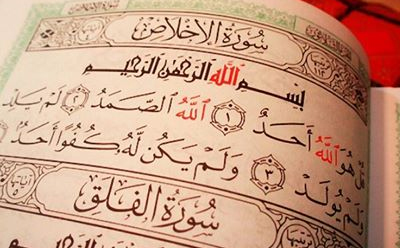 سُورَةُ الإِخْلَاصِ
بِسْمِ ٱللَّهِ ٱلرَّحْمَٰنِ ٱلرَّحِيمِ
قُلْ هُوَ ٱللَّهُ أَحَدٌ ١ ٱللَّهُ ٱلصَّمَدُ ٢ لَمْ يَلِدْ
وَلَمْ يُولَدْ ٣ وَلَمْ يَكُن لَّهُۥ كُفُوًا أَحَدٌۢ
سُورَةُ الْفَلَقِ